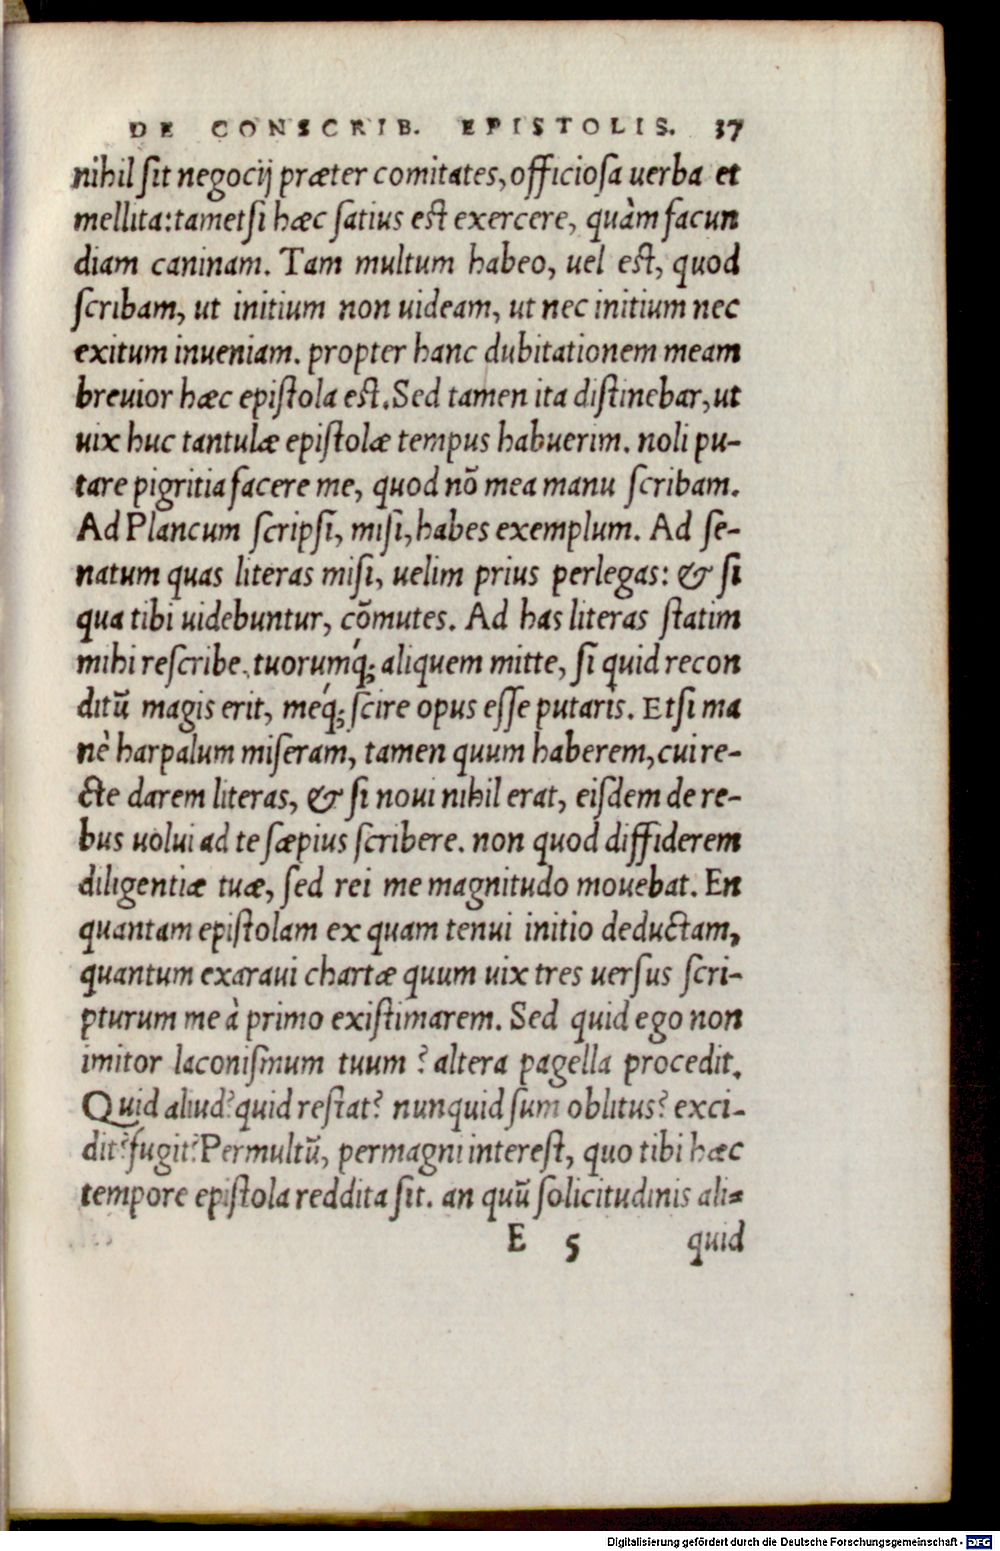 DE CONSCRIB. EPISTOLIS. 37
nihil ſit negocij præter comitates, officioſa uerba et
mellita: tametſi hæc ſatius eſt exercere, quàm facun
diam caninam. Tam multum habeo, uel eſt, quod
ſcribam, ut initium non uideam, ut nec initium nec
exitum inueniam. propter hanc dubitationem meam
breuior hæc epiſtola eſt. Sed tamen ita diſtinebar, ut
uix huc tantulæ epiſtolæ tempus habuerim. noli pu-
tare pigritia facere me, quod nõ mea manu ſcribam.
Ad Plancum ſcripſi, miſi, habes exemplum. Ad ſe-
natum quas literas miſi, uelim prius perlegas: & ſi
qua tibi uidebuntur, cõmutes. Ad has literas ſtatim
mihi reſcribe. tuorumq́; aliquem mitte, ſi quid recon
ditũ magis erit, meq́; ſcire opus eſſe putaris. Etſi ma
nè harpalum miſeram, tamen quum haberem, cui re-
cte darem literas, & ſi noui nihil erat, eiſdem de re-
bus uolui ad te ſæpius ſcribere. non quod diffiderem
diligentiæ tuæ, ſed rei me magnitudo mouebat. En
quantam epiſtolam ex quam tenui initio deductam,
quantum exaraui chartæ quum uix tres uerſus ſcri-
pturum me à primo exiſtimarem. Sed quid ego non
imitor laconiſmum tuum? altera pagella procedit.
Quid aliud? quid reſtat? nunquid ſum oblitus? exci-
dit? fugit? Permultũ, permagni intereſt, quo tibi hæc
tempore epiſtola reddita ſit. an quũ ſolicitudinis ali-
E 5 quid
Digitalisierung gefördert durch die Deutsche Forschungsgemeinschaft - DFG